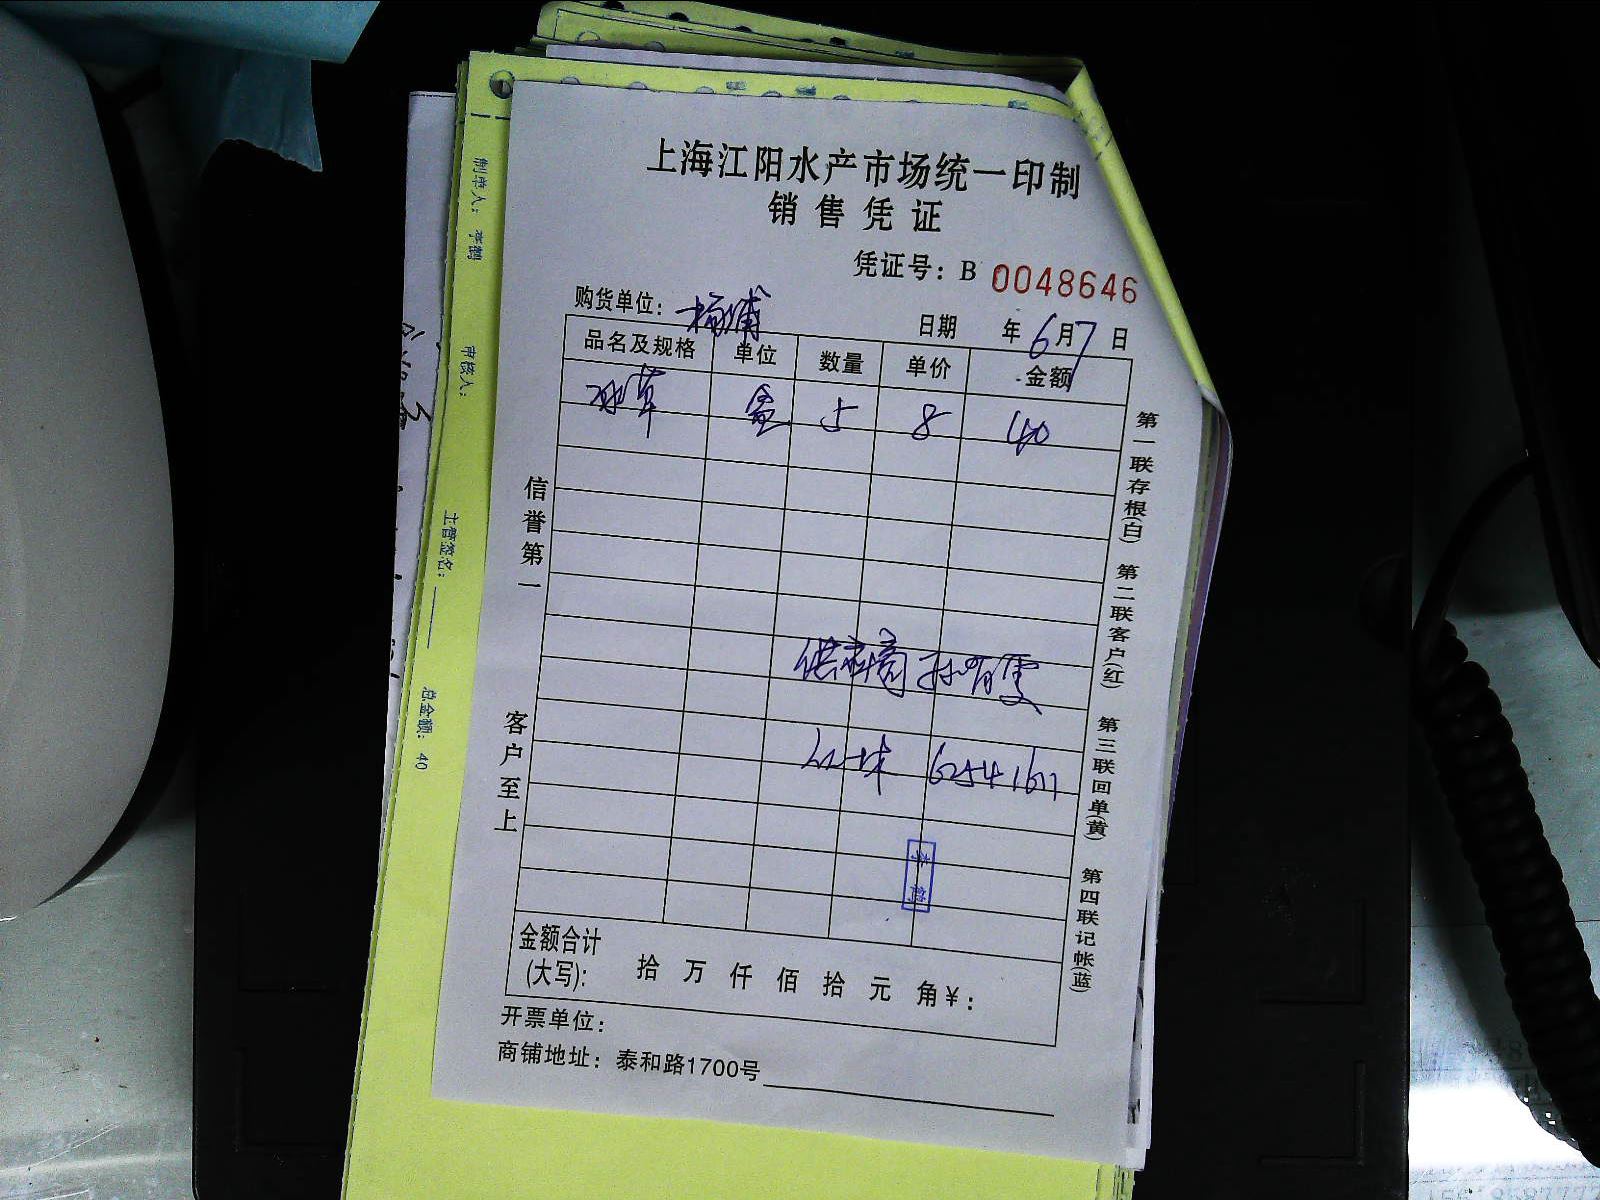 上海江阳水产市场统一印制
销售凭证
凭证号：B 0048646
购货单位：杨浦 日期 年6月7日
品名及规格 单位 数量 单价 金额
冰草 盒 5 8 40
供应商
62541617
李鹤
金额合计
(大写)： 拾 万 仟 佰 拾 元 角¥：
开票单位：
商铺地址：泰和路1700号
信誉第一
客户至上
第一联存根(白) 第二联客户(红) 第三联回单(黄) 第四联记帐(蓝)
制单人：李鹤 审核人： 主管签名： 总金额：40